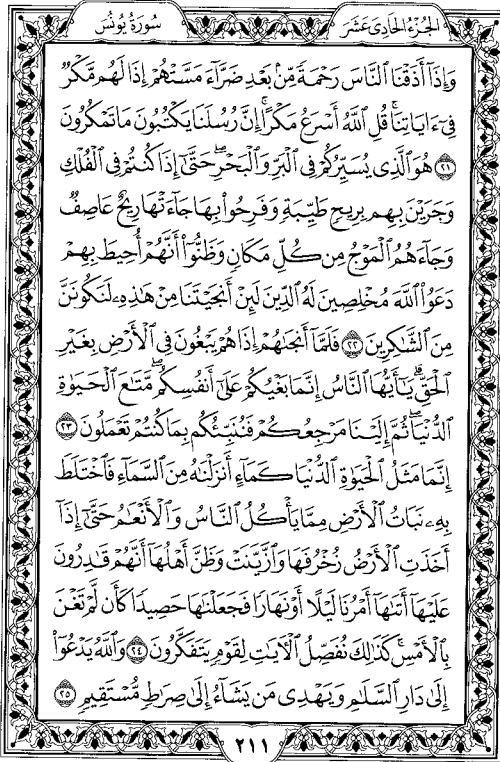 الجزء الحادى عشر
سورة يونس
وَإِذَآ أَذَقْنَا ٱلنَّاسَ رَحْمَةً مِّنۢ بَعْدِ ضَرَّآءَ مَسَّتْهُمْ إِذَا لَهُم مَّكْرٌ
فِىٓ ءَايَاتِنَا ۚ قُلِ ٱللَّهُ أَسْرَعُ مَكْرًا ۚ إِنَّ رُسُلَنَا يَكْتُبُونَ مَا تَمْكُرُونَ
٢١ هُوَ ٱلَّذِى يُسَيِّرُكُمْ فِى ٱلْبَرِّ وَٱلْبَحْرِ ۖ حَتَّىٰٓ إِذَا كُنتُمْ فِى ٱلْفُلْكِ
وَجَرَيْنَ بِهِم بِرِيحٍ طَيِّبَةٍ وَفَرِحُوا۟ بِهَا جَآءَتْهَا رِيحٌ عَاصِفٌ
وَجَآءَهُمُ ٱلْمَوْجُ مِن كُلِّ مَكَانٍ وَظَنُّوٓا۟ أَنَّهُمْ أُحِيطَ بِهِمْ
دَعَوُا۟ ٱللَّهَ مُخْلِصِينَ لَهُ ٱلدِّينَ لَئِنْ أَنجَيْتَنَا مِنْ هَـٰذِهِۦ لَنَكُونَنَّ
مِنَ ٱلشَّـٰكِرِينَ ٢٢ فَلَمَّآ أَنجَىٰهُمْ إِذَا هُمْ يَبْغُونَ فِى ٱلْأَرْضِ بِغَيْرِ
ٱلْحَقِّ ۗ يَـٰٓأَيُّهَا ٱلنَّاسُ إِنَّمَا بَغْيُكُمْ عَلَىٰٓ أَنفُسِكُم ۖ مَّتَـٰعَ ٱلْحَيَوٰةِ
ٱلدُّنْيَا ۖ ثُمَّ إِلَيْنَا مَرْجِعُكُمْ فَنُنَبِّئُكُم بِمَا كُنتُمْ تَعْمَلُونَ ٢٣
إِنَّمَا مَثَلُ ٱلْحَيَوٰةِ ٱلدُّنْيَا كَمَآءٍ أَنزَلْنَـٰهُ مِنَ ٱلسَّمَآءِ فَٱخْتَلَطَ
بِهِۦ نَبَاتُ ٱلْأَرْضِ مِمَّا يَأْكُلُ ٱلنَّاسُ وَٱلْأَنْعَـٰمُ حَتَّىٰٓ إِذَآ
أَخَذَتِ ٱلْأَرْضُ زُخْرُفَهَا وَٱزَّيَّنَتْ وَظَنَّ أَهْلُهَآ أَنَّهُمْ قَـٰدِرُونَ
عَلَيْهَآ أَتَىٰهَآ أَمْرُنَا لَيْلًا أَوْ نَهَارًا فَجَعَلْنَـٰهَا حَصِيدًا كَأَن لَّمْ تَغْنَ
بِٱلْأَمْسِ ۚ كَذَٰلِكَ نُفَصِّلُ ٱلْـَٔايَـٰتِ لِقَوْمٍ يَتَفَكَّرُونَ ٢٤ وَٱللَّهُ يَدْعُوٓا۟
إِلَىٰ دَارِ ٱلسَّلَـٰمِ وَيَهْدِى مَن يَشَآءُ إِلَىٰ صِرَٰطٍ مُّسْتَقِيمٍ ٢٥
٢١١